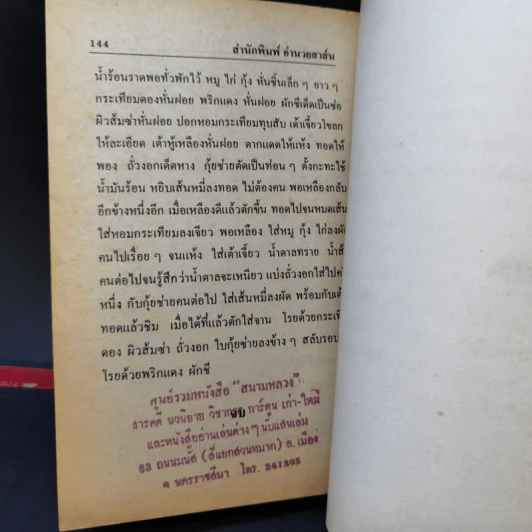 144
สำนักพิมพ์ อำนวยสาส์น
น้ำร้อนราดพอทั่วพักไว้ หมู ไก่ กุ้ง หั่นชิ้นเล็ก ๆ ยาว ๆ
กระเทียมดองหั่นฝอย พริกแดง หั่นฝอย ผักชีเด็ดเป็นช่อ
ผิวส้มซ่าหั่นฝอย ปอกหอมกระเทียมทุบสับ เต้าเจี้ยวโขลก
ให้ละเอียด เต้าหู้เหลืองหั่นฝอย ตากแดดให้แห้ง ทอดให้
พอง ถั่วงอกเด็ดหาง กุ้ยช่ายตัดเป็นท่อน ๆ ตั้งกะทะใช้
น้ำมันร้อน หยิบเส้นหมี่ลงทอด ไม่ต้องคน พอเหลืองกลับ
อีกข้างหนึ่งอีก เมื่อเหลืองดีแล้วตักขึ้น ทอดไปจนหมดเส้น
ใส่หอมกระเทียมลงเจียว พอเหลือง ใส่หมู กุ้ง ไก่ลงผัด
คนไปเรื่อย ๆ จนแห้ง ใส่เต้าเจี้ยว น้ำตาลทราย
คนต่อไปจนรู้สึกว่าน้ำตาลจะเหนียว แบ่งถั่วงอกใส่ไป
หนึ่ง กับกุ้ยช่ายคนต่อไป ใส่เส้นหมี่ลงผัด พร้อมกับ
ทอดแล้วชิม เมื่อได้ที่แล้วตักใส่จาน โรยด้วย
ดอง ผิวส้มซ่า ถั่วงอก ใบกุ้ยช่ายลงข้าง ๆ สลับรอบ
โรยด้วยพริกแดง ผักชี
จบ
ศูนย์รวมหนังสือ "สนามหลวง"
สารคดี นวนิยาย วิชาการ การ์ตูน เก่า-ใหม่
และหนังสืออ่านเล่นต่าง ๆ นับแสนเล่ม
63 ถนนมนัส (สี่แยกสวนหมาก) อ. เมือง
จ นครราชสีมา โทร. 241298